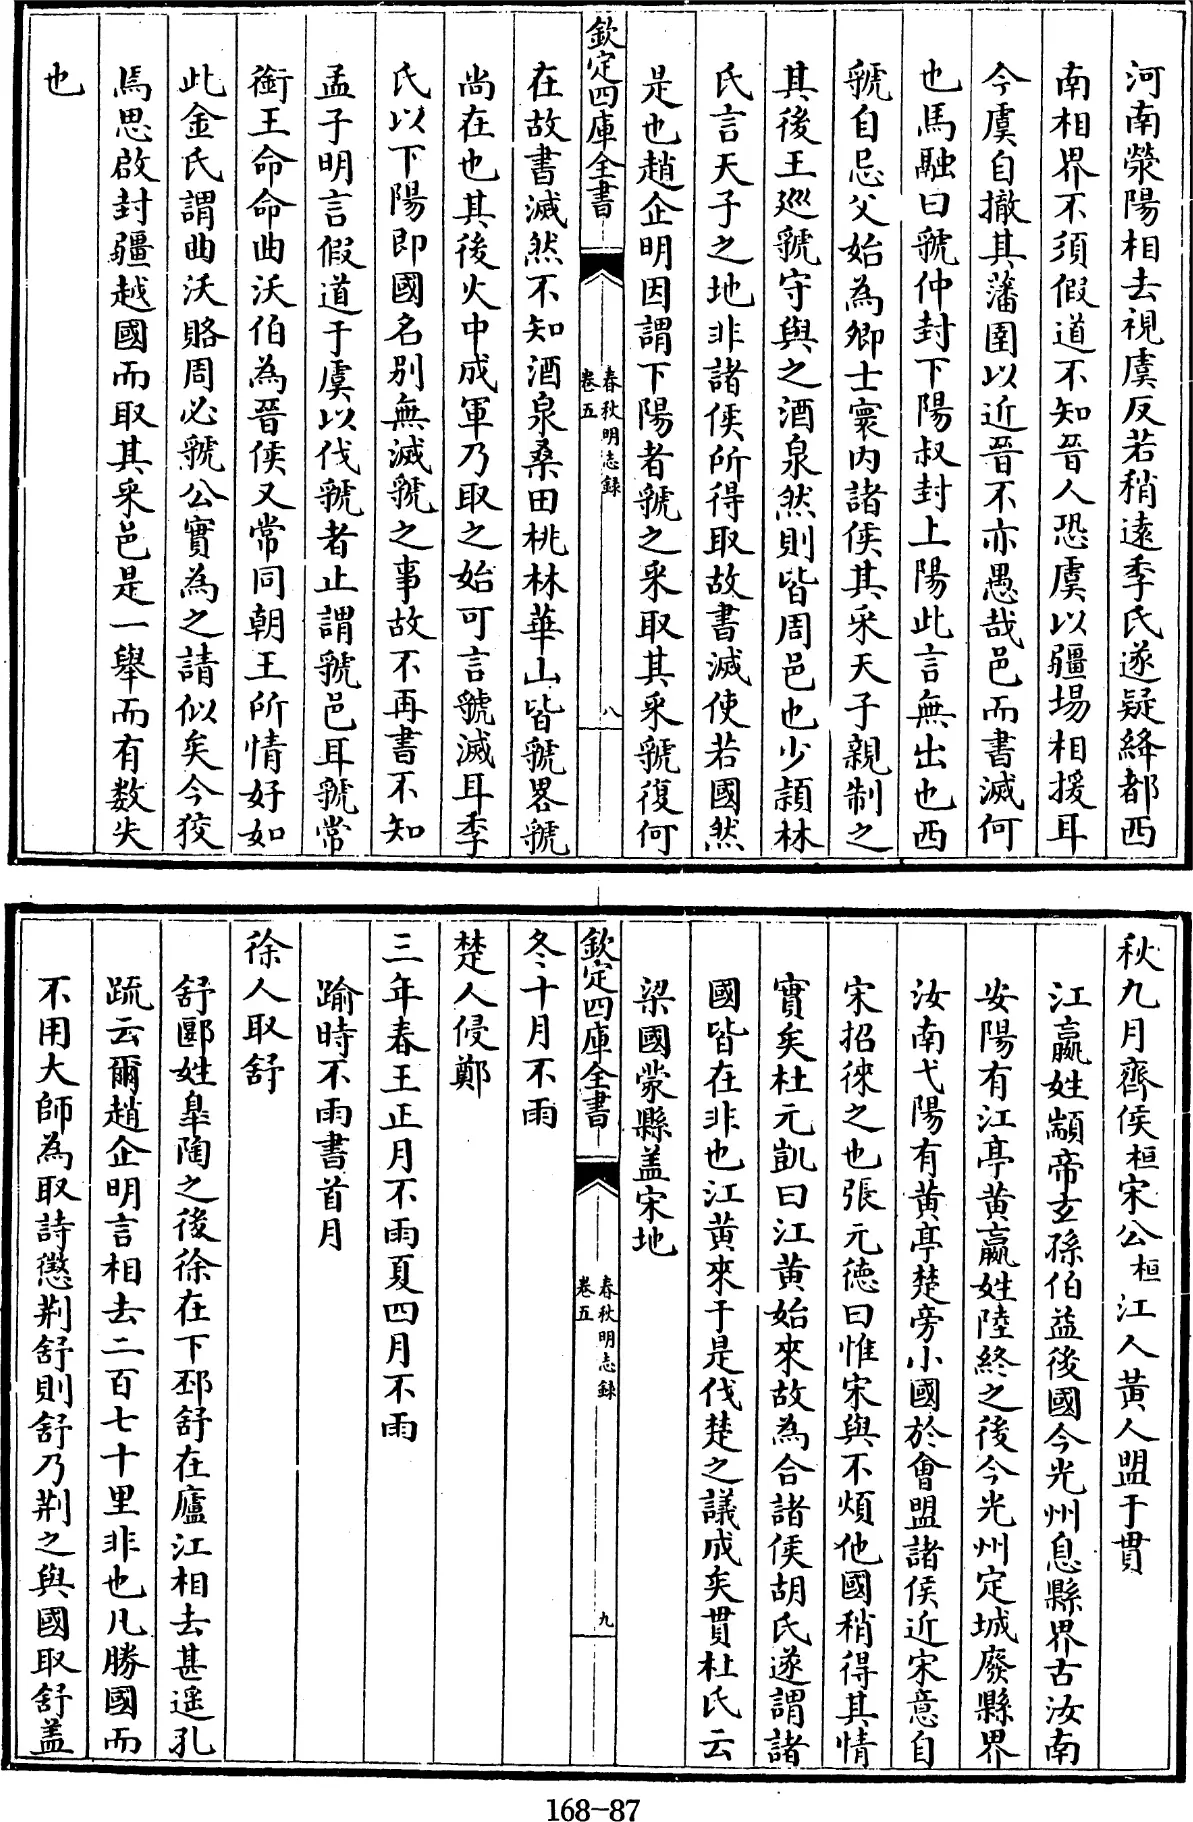 河南滎陽相去視虞反若稍遠季氏遂疑絳都西
南相界不須假道不知晉人恐虞以疆場相援耳
今虞自撤其藩圉以近晉不亦愚哉邑而書滅何
也馬融曰虢仲封下陽叔封上陽此言無出也西
虢自忌父始為卿士寰内諸侯其采天子親制之
其後王廵虢守與之酒泉然則皆周邑也少頴林
氏言天子之地非諸侯所得取故書滅使若國然
是也趙企明因謂下陽者虢之采取其采虢復何
欽定四庫全書
春秋明志録
卷五
八
在故書滅然不知酒泉桑田桃林華山皆虢畧虢
尚在也其後火中成軍乃取之始可言虢滅耳季
氏以下陽即國名别無滅虢之事故不再書不知
孟子明言假道于虞以伐虢者止謂虢邑耳虢常
銜王命命曲沃伯為晉侯又常同朝王所情好如
此金氏謂曲沃賂周必虢公實為之請似矣今狡
焉思啟封疆越國而取其采邑是一舉而有数失
也
秋九月齊侯桓宋公桓江人黄人盟于貫
江嬴姓顓帝玄孫伯益後國今光州息縣界古汝南
安陽有江亭黄嬴姓陸終之後今光州定城廢縣界
汝南弋陽有黄亭楚旁小國於會盟諸侯近宋意自
宋招徠之也張元德曰惟宋與不煩他國稍得其情
實矣杜元凱曰江黄始來故為合諸侯胡氏遂謂諸
國皆在非也江黄來于是伐楚之議成矣貫杜氏云
梁國蒙縣盖宋地
欽定四庫全書
春秋明志録
卷五
九
冬十月不雨
楚人侵鄭
三年春王正月不雨夏四月不雨
踰時不雨書首月
徐人取舒
舒郾姓臯陶之後徐在下邳舒在廬江相去甚遥孔
疏云爾趙企明言相去二百七十里非也凡勝國而
不用大師為取詩懲荆舒則舒乃荆之與國取舒盖
168-87